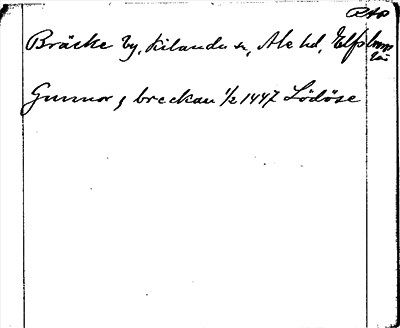 RAP
Bräcke by, Kilanda sn, Ale hd, Elfsborgs
län
Gunnor j breckan 1/2 1447 Lödöse